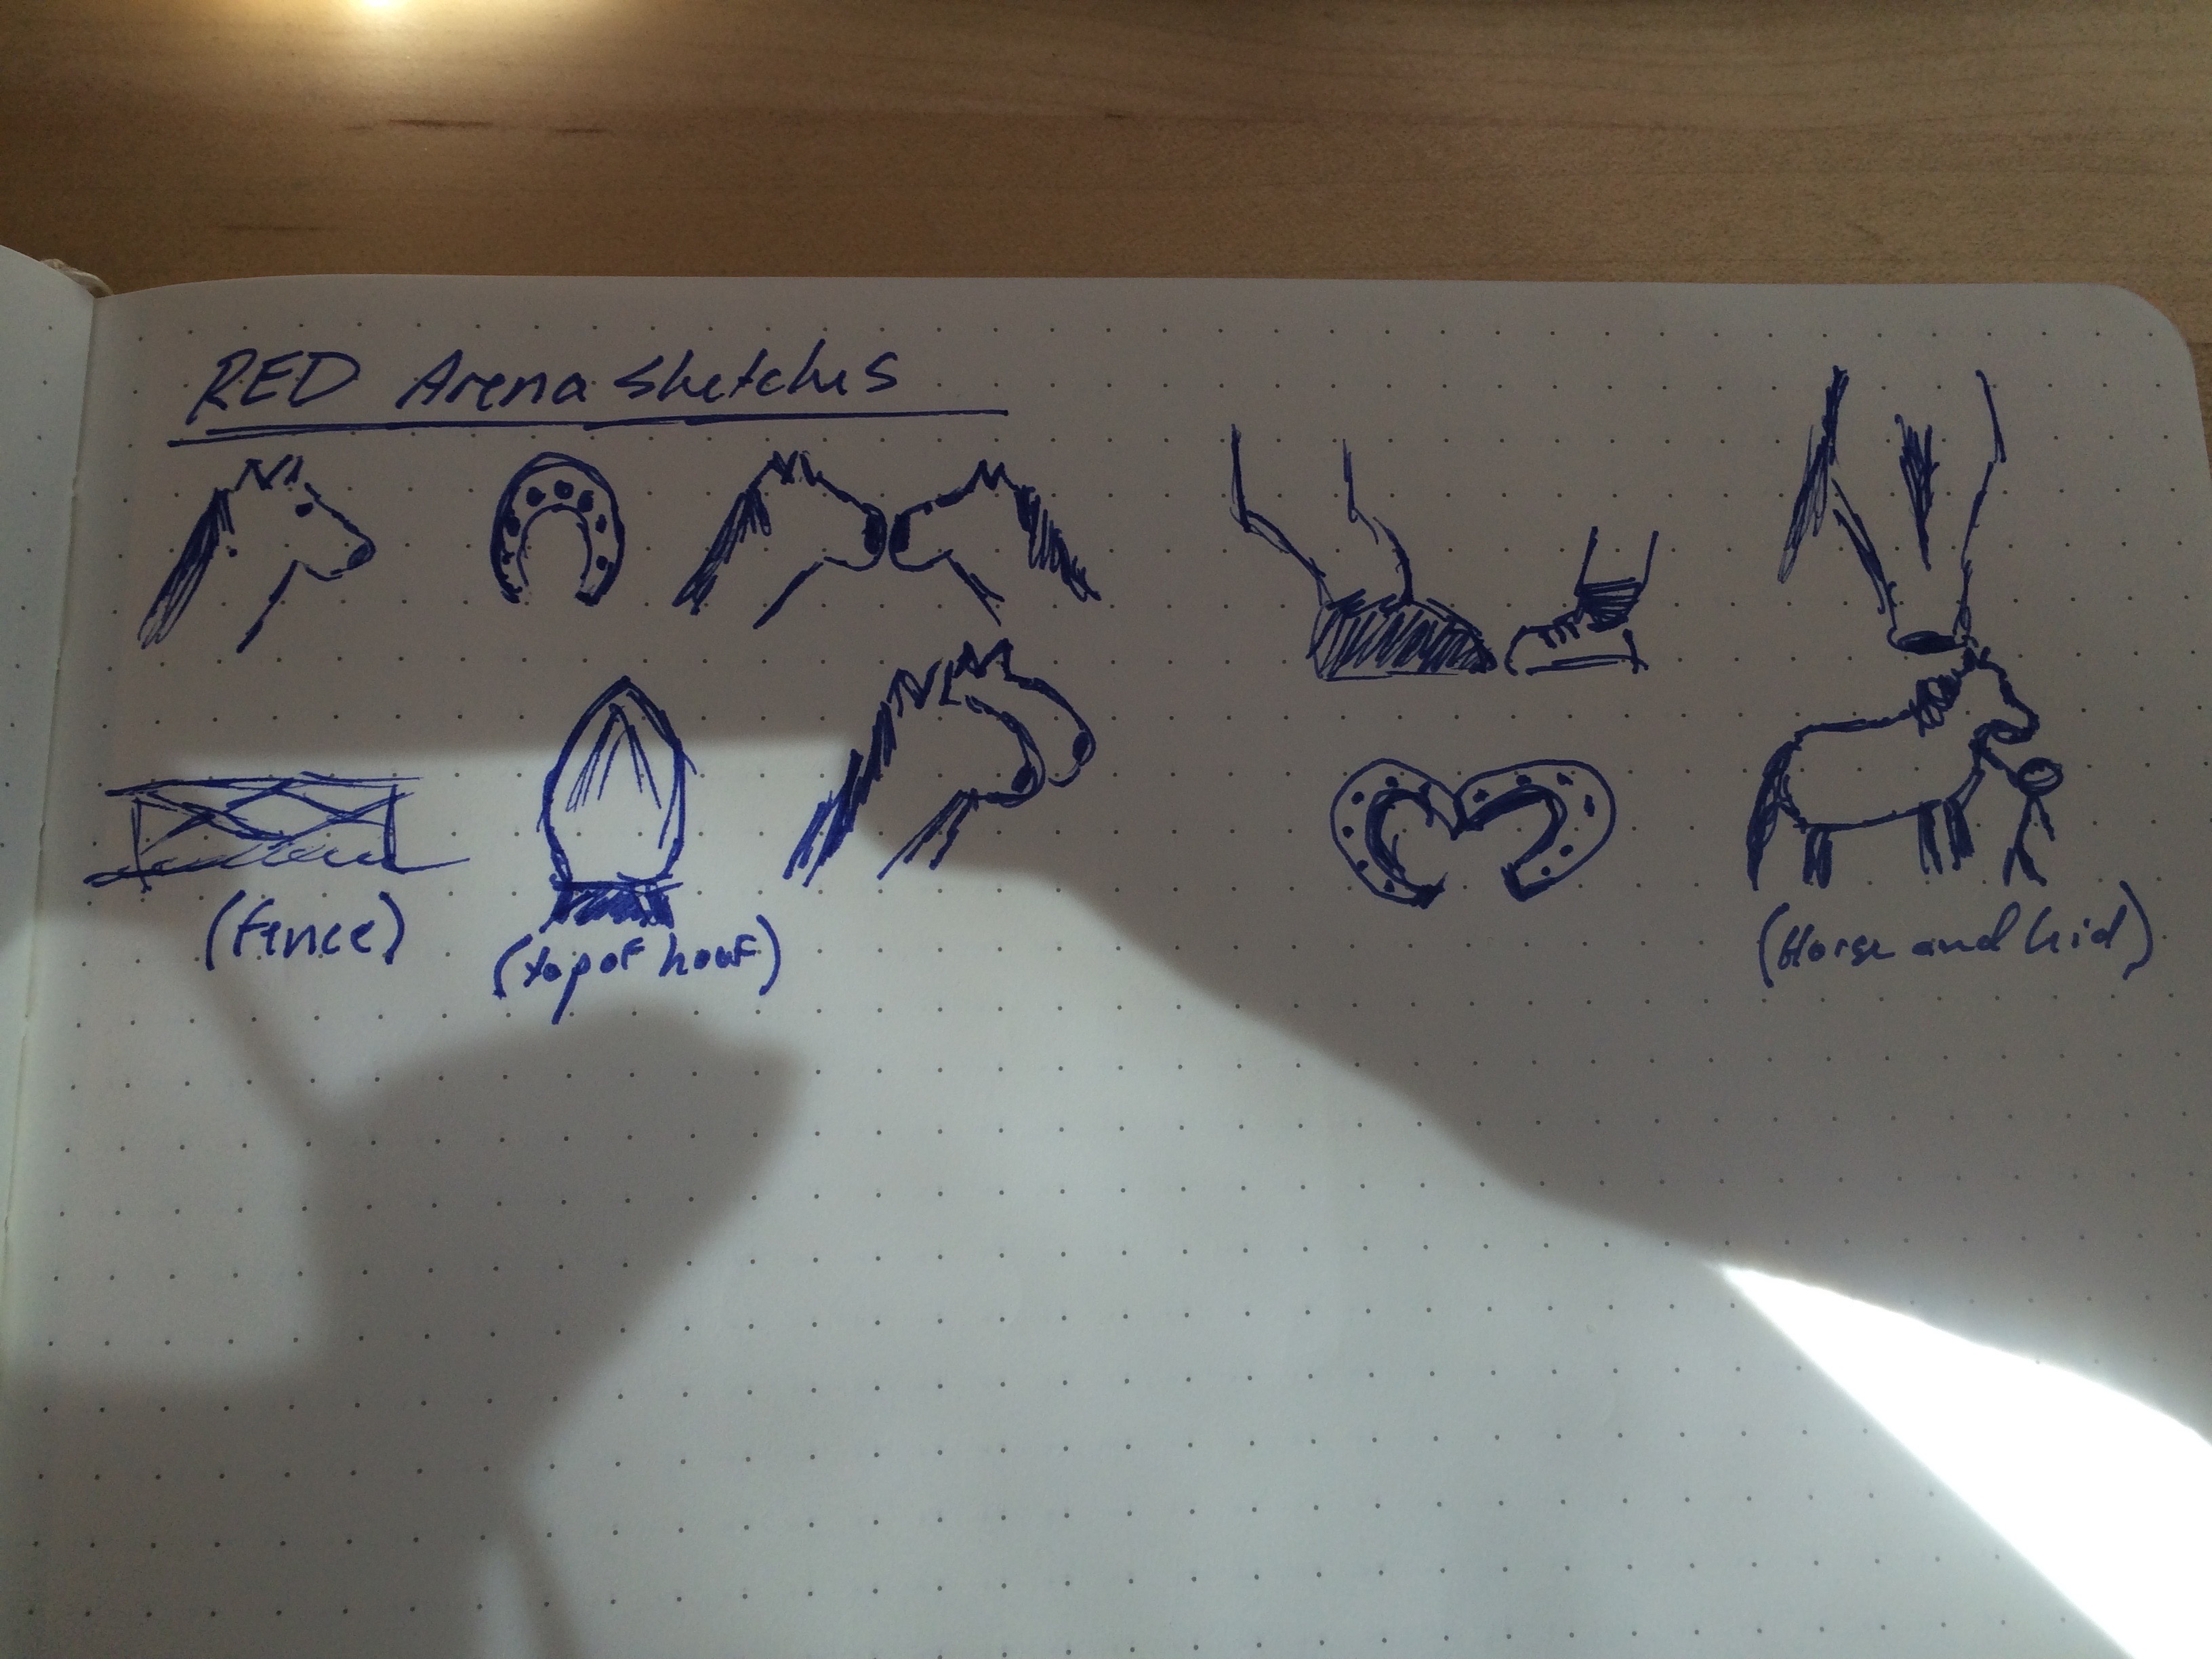 RED Arena Sketches
(fence)
(top of hoof)
(Horse and kid)